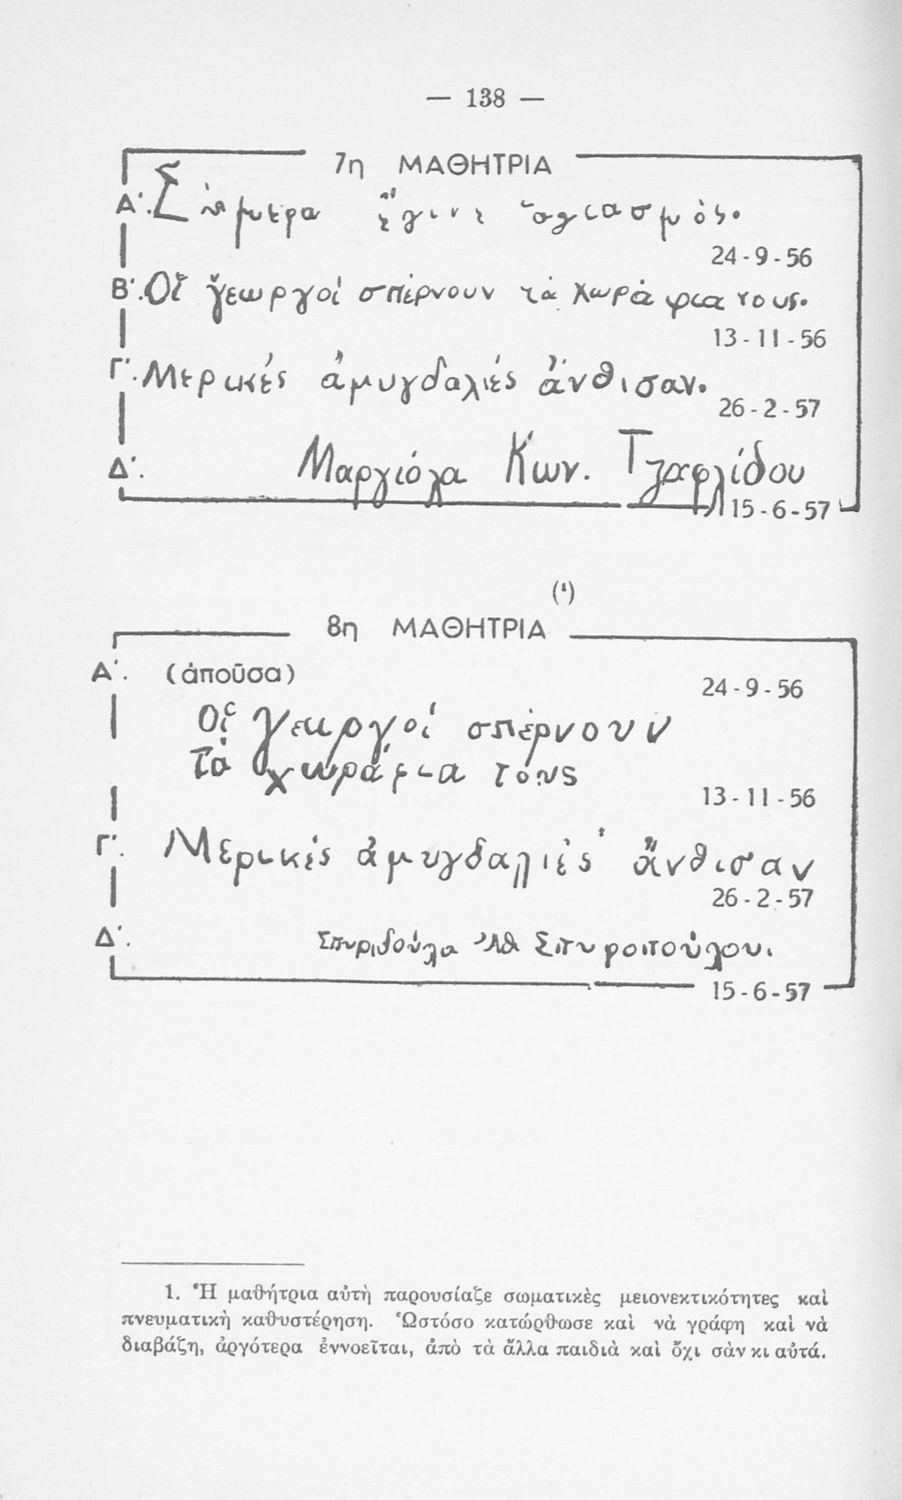 — 138 —
7η ΜΑΘΗΤΡΙΑ
Α΄. Σήμερα ἔγινε ἁγιασμός.
24-9-56
Β΄. Οἵ γεωργοί σπέρνουν τά χωράφια τους.
13-11-56
Γ΄. Μερικές ἀμυγδαλιές ἄνθισαν.
26-2-57
Δ΄. Μαργιόλα Κων. Τζαφλίδου
15-6-57
(¹)
8η ΜΑΘΗΤΡΙΑ
Α΄. (ἀποῦσα)
24-9-56
Οἱ γεωργοί σπέρνουν
τά χωράφια τους
13-11-56
Γ΄. Μερικές ἀμυγδαλιές ἄνθισαν
26-2-57
Δ΄. Σπυριδούλα Ἀθ Σπυροπούλου.
15-6-57
1. Ἡ μαθήτρια αὐτὴ παρουσίαζε σωματικὲς μειονεκτικότητες καὶ
πνευματικὴ καθυστέρηση. Ὡστόσο κατώρθωσε καὶ νὰ γράφη καὶ νὰ
διαβάζη, ἀργότερα ἐννοεῖται, ἀπὸ τὰ ἄλλα παιδιὰ καὶ ὄχι σὰν κι αὐτά.